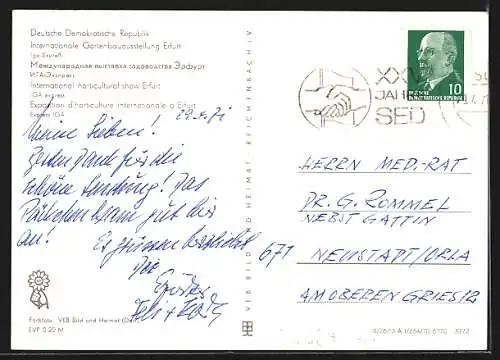 Deutsche Demokratische Republik
Internationale Gartenbauausstellung Erfurt
Iga-Expreß
Международная выставка садоводства Эрфурт
ИГА-Экспресс
International horticultural show Erfurt
IGA express
Exposition d'horticulture internationale à Erfurt
Express IGA
29.4.71
Meine Lieben!
Besten Dank für die
schöne Sendung! Das
Päckchen kam gut hier
an!
Es grüssen herzlichst
Fotofax: VEB Bild und Heimat
EVP 0,20 M
VEB BILD UND HEIMAT REICHENBACH I. V.
XXV
JAHRE
SED
10
HERRN MED.-RAT
DR. G. ROMMEL
NEBST GATTIN
671 NEUSTADT/ORLA
AM OBEREN GRIES